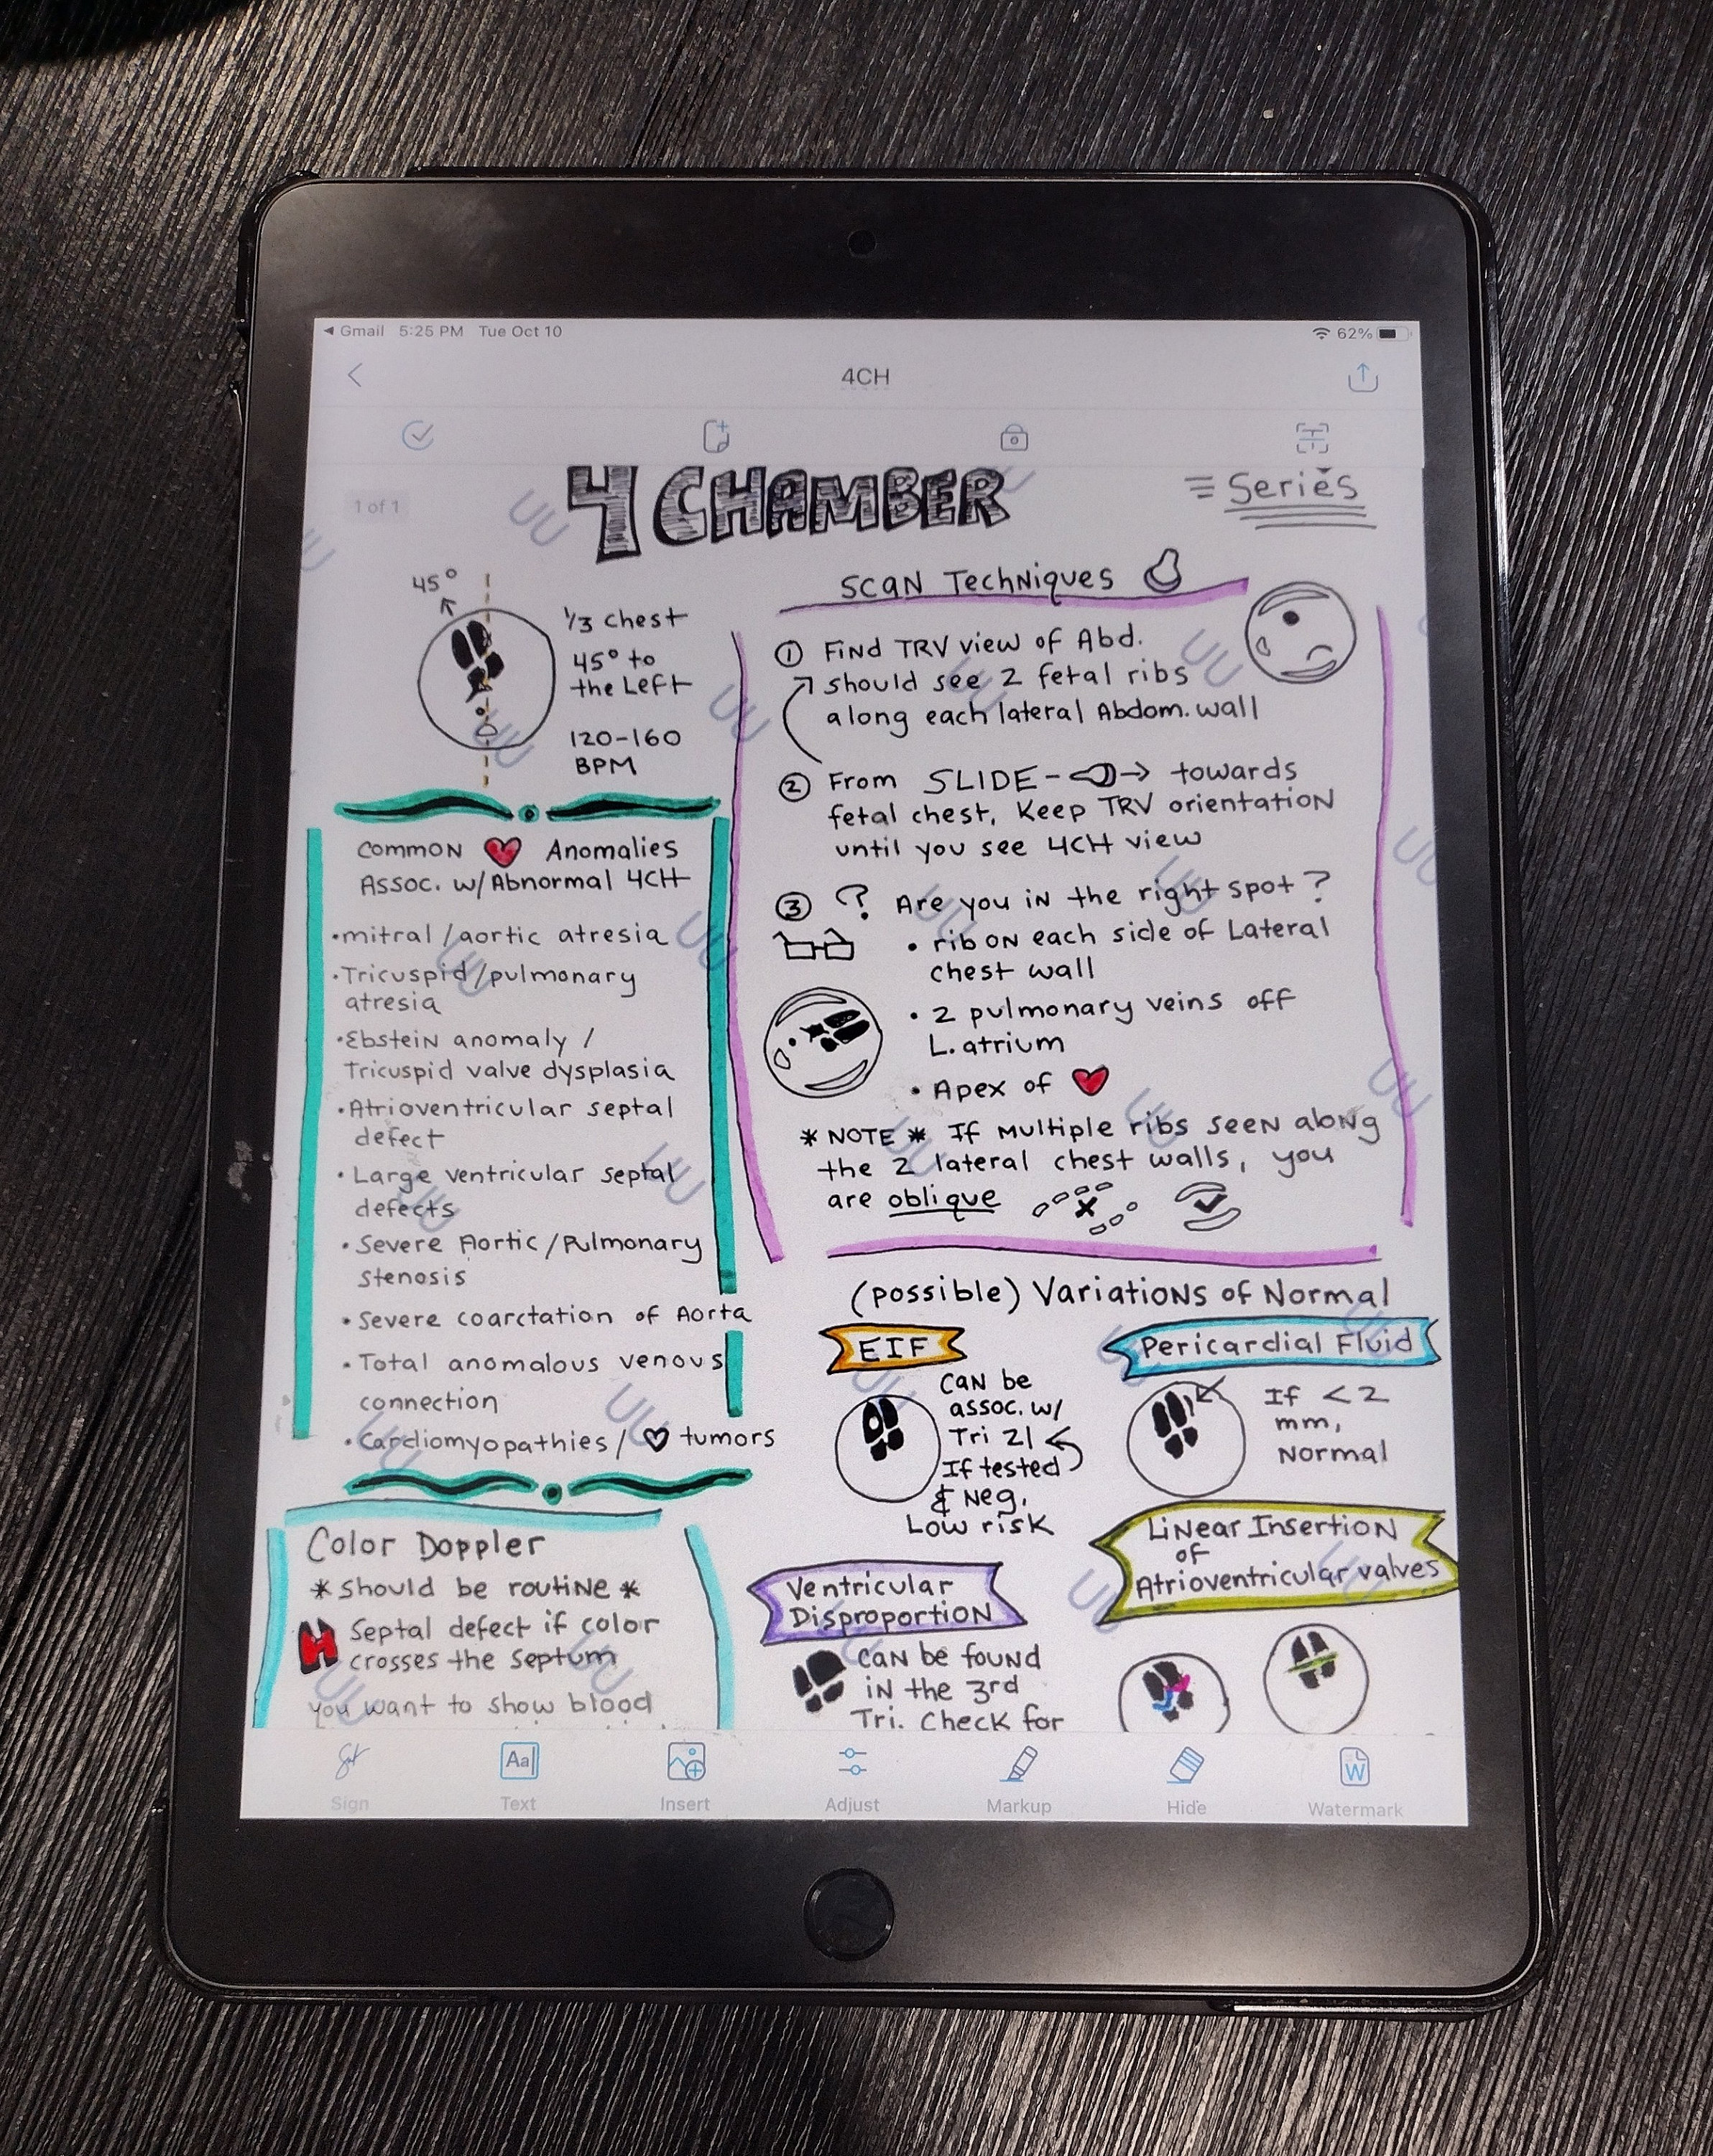 ◀ Gmail 5:25 PM Tue Oct 10
62%
4CH
1 of 1
4 CHAMBER
Series
45°
1/3 chest
45° to
the Left
120-160
BPM
Common ❤ Anomalies
Assoc. w/Abnormal 4CH
• mitral/aortic atresia
• Tricuspid/pulmonary
atresia
• Ebstein anomaly /
Tricuspid valve dysplasia
• Atrioventricular septal
defect
• Large ventricular septal
defects
• Severe Aortic/Pulmonary
stenosis
• Severe coarctation of Aorta
• Total anomalous venous
connection
• Cardiomyopathies/ ♡ tumors
Color Doppler
* Should be routine *
Septal defect if color
crosses the septum
you want to show blood
Scan Techniques
① Find TRV view of Abd.
should see 2 fetal ribs
along each lateral Abdom. wall
② From SLIDE - → towards
fetal chest, Keep TRV orientation
until you see 4CH view
③ ? Are you in the right spot?
• rib on each side of Lateral
chest wall
• 2 pulmonary veins off
L. atrium
• Apex of ❤
* NOTE * If multiple ribs seen along
the 2 lateral chest walls, you
are oblique
(possible) Variations of Normal
EIF
Can be
assoc. w/
Tri 21
If tested
& Neg.
Low risk
Pericardial Fluid
If < 2
mm,
Normal
Ventricular
Disproportion
Can be found
in the 3rd
Tri. Check for
Linear Insertion
of
Atrioventricular valves
UU
Sign
Text
Insert
Adjust
Markup
Hide
Watermark